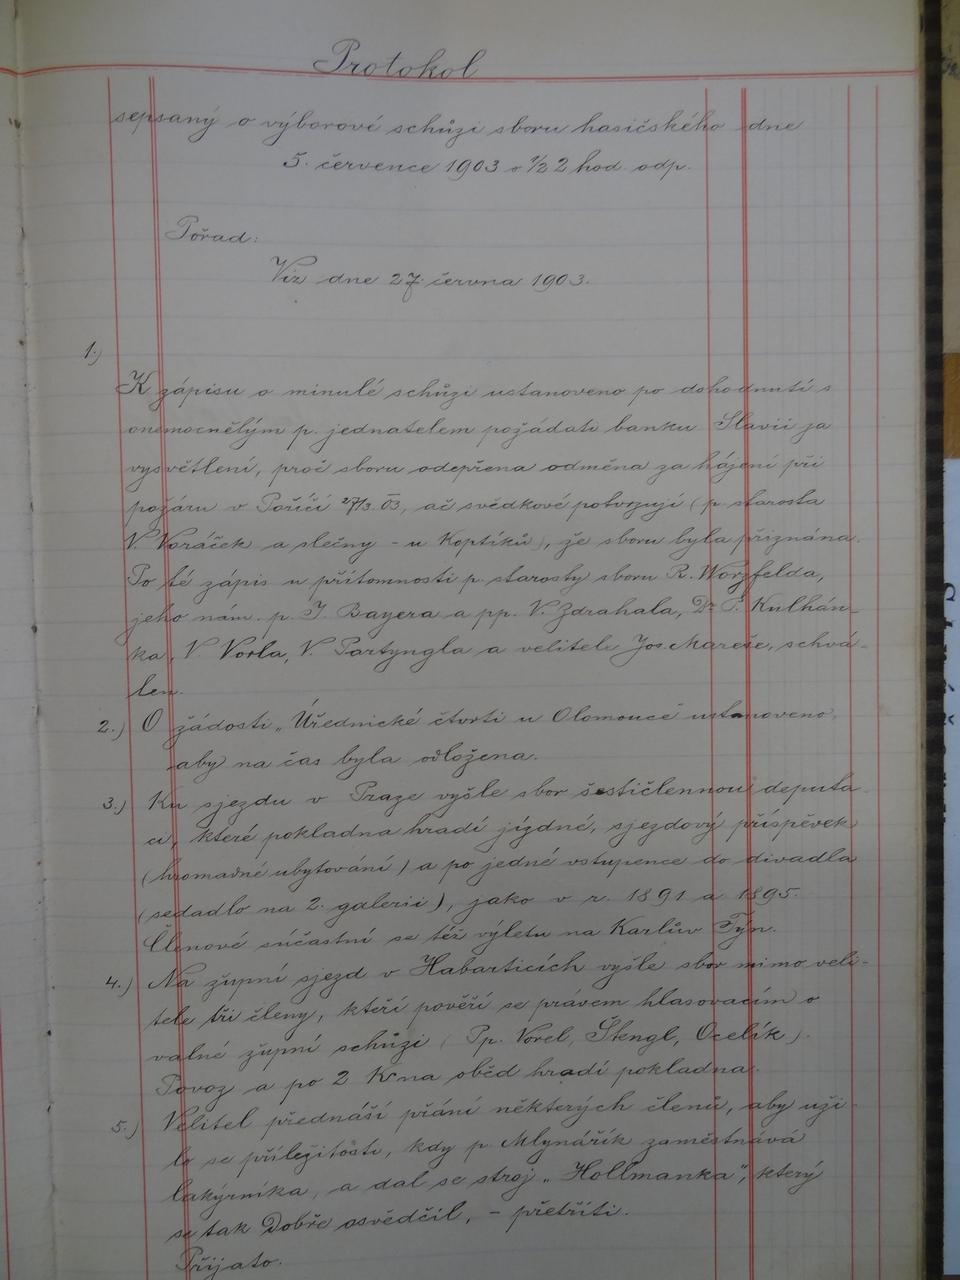 Protokol
sepsaný o výborové schůzi sboru hasičského dne
5. července 1903 o 1/2 2 hod. odp.
Pořad:
Viz dne 27. června 1903.
1.)
K zápisu o minulé schůzi ustanoveno po dohodnutí s
onemocnělým p. jednatelem požádati banku Slavii za
vysvětlení, proč sboru odepřena odměna za hájení při
požáru v Poříčí 27/3. 03, ač svědkové potvrzují (p. starosta
V. Voráček a slečny - u Koptíků), že sboru byla přiznána.
Po té zápis u přítomnosti p. starosty sboru R. Worzfelda,
jeho nám. p. J. Bayera a pp. V. Zdrahala, Dr. P. Kulhán-
ka, V. Vorla, V. Partyngla a velitele Jos. Mareše, schvá-
len.
2.) O žádosti „Úřednické čtvrti u Olomoucě ustanoveno,
aby na čas byla odložena.
3.) Ku sjezdu v Praze vyšle sbor šestičlennou deputa-
ci, které pokladna hradí jízdné, sjezdový příspěvek
(hromadné ubytování) a po jedné vstupence do divadla
(sedadlo na 2. galerii), jako v r. 1891 a 1895.
Členové súčastní se též výletu na Karlův Týn.
4.) Na župní sjezd v Habarticích vyšle sbor mimo veli-
tele tři členy, kteří pověří se právem hlasovacím o
valné župní schůzi (Pp. Vorel, Štengl, Ocelík).
Povoz a po 2 K na oběd hradí pokladna.
5.) Velitel přednáší přání některých členů, aby uži-
lo se příležitosti, kdy p. Mlynářík zaměstnává
lakýrníka, a dal se stroj „Hollmanka", který
se tak dobře osvědčil, - přetříti.
Přijato.